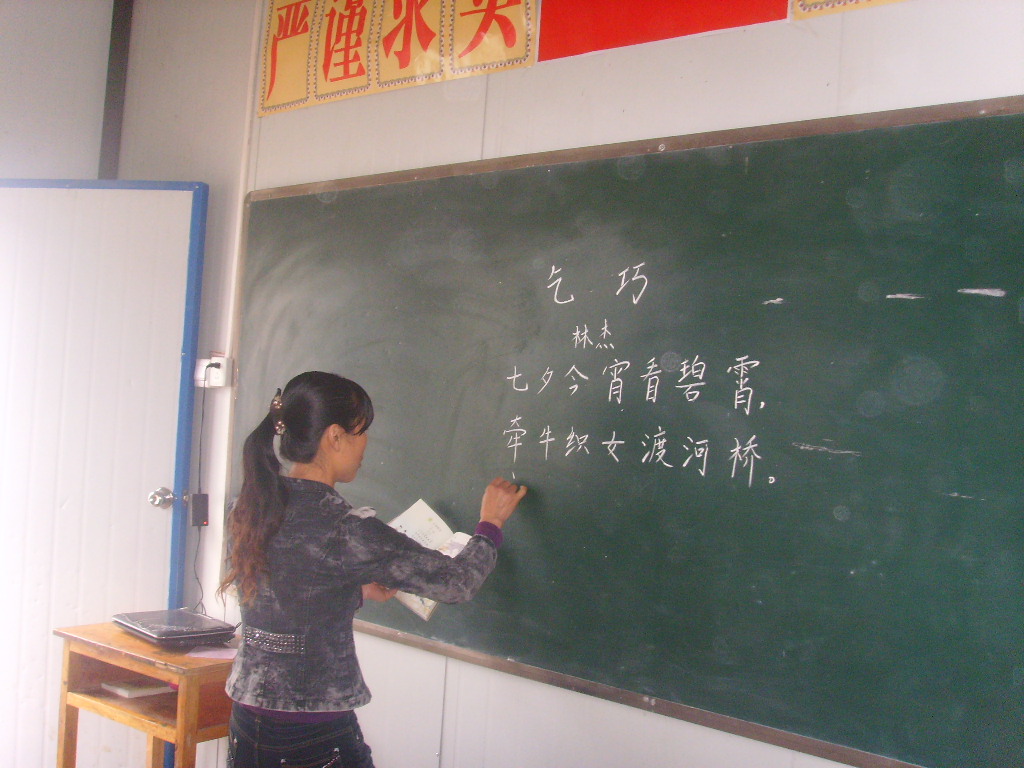 严谨求实
乞巧
林杰
七夕今宵看碧霄,
牵牛织女渡河桥。